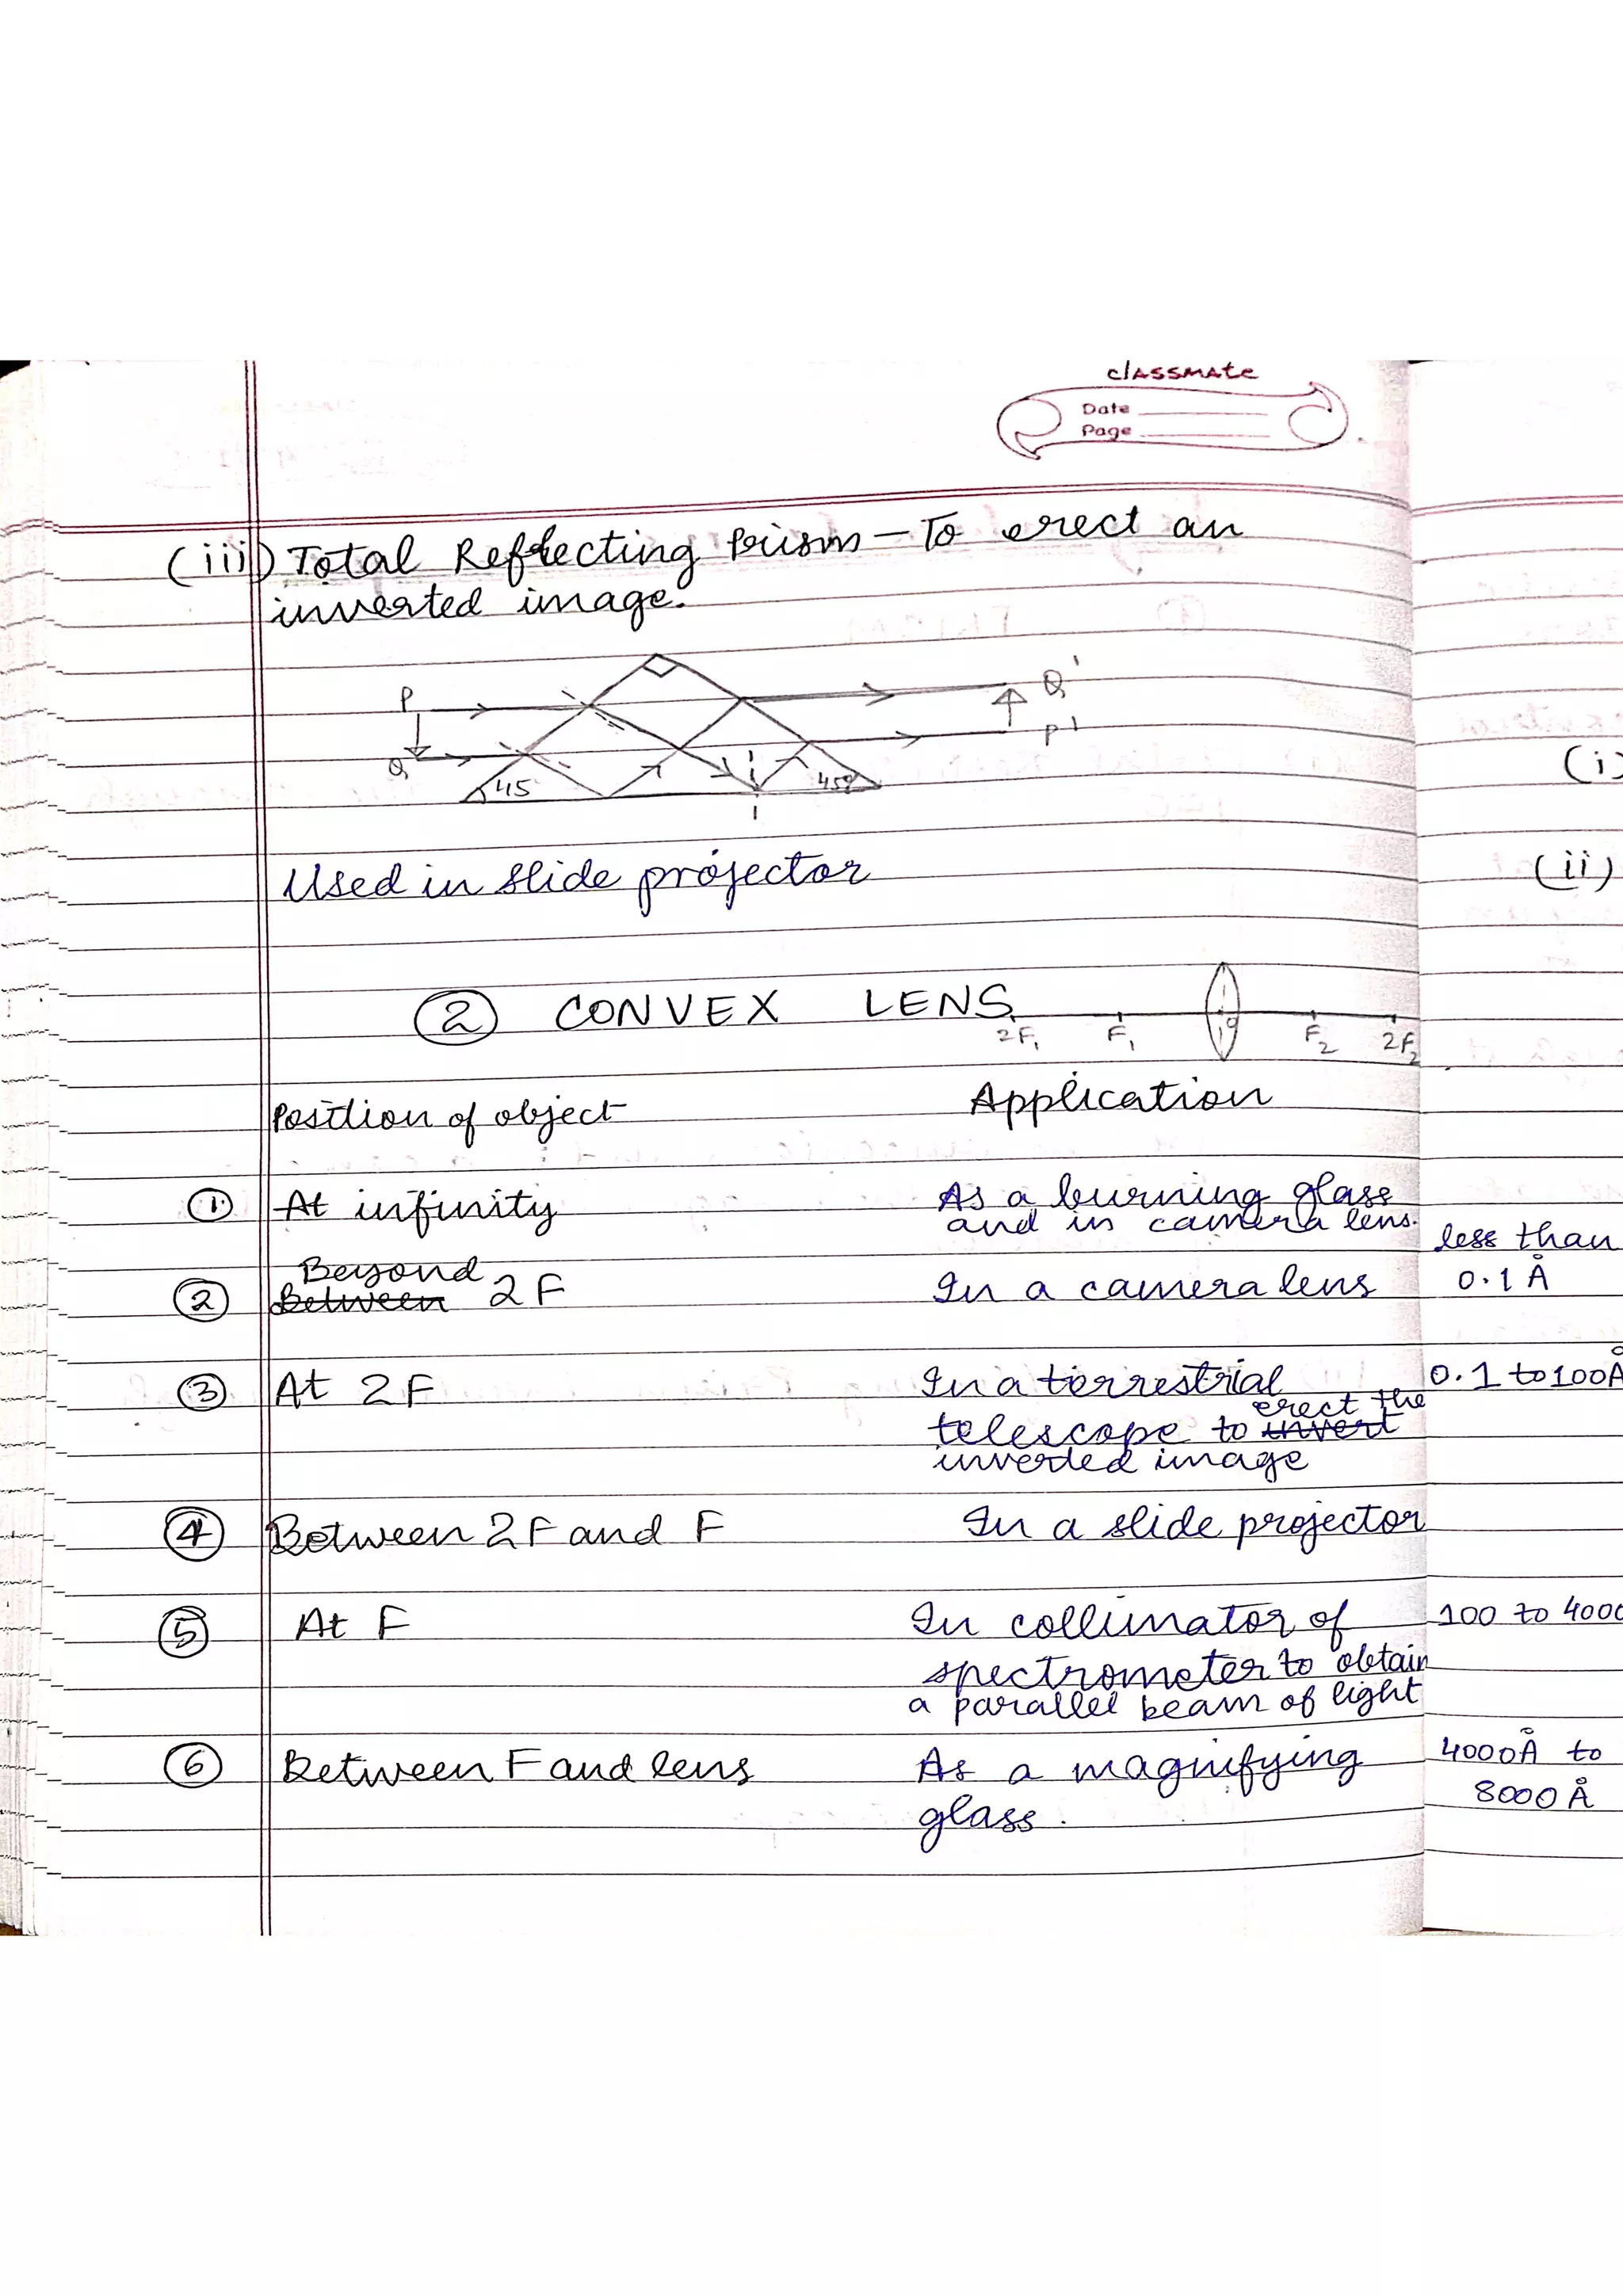 classmate
Date
Page
(iii) Total Reflecting Prism – To erect an
inverted image.
P
Q'
P'
Q
45
i
45°
Used in slide projector
② CONVEX LENS
2F₁ F₁ O F₂ 2F₂
Position of object Application
① At infinity As a burning glass
and in camera lens.
Beyond
② Between 2F In a camera lens
③ At 2F In a terrestrial
erect the
telescope to invert
inverted image
④ Between 2F and F In a slide projector
⑤ At F In collimator of
spectrometer to obtain
a parallel beam of light
⑥ Between F and lens As a magnifying
glass.
(i)
(ii)
less than
0.1 Å
0.1 to 100Å
100 to 4000
4000Å to
8000 Å